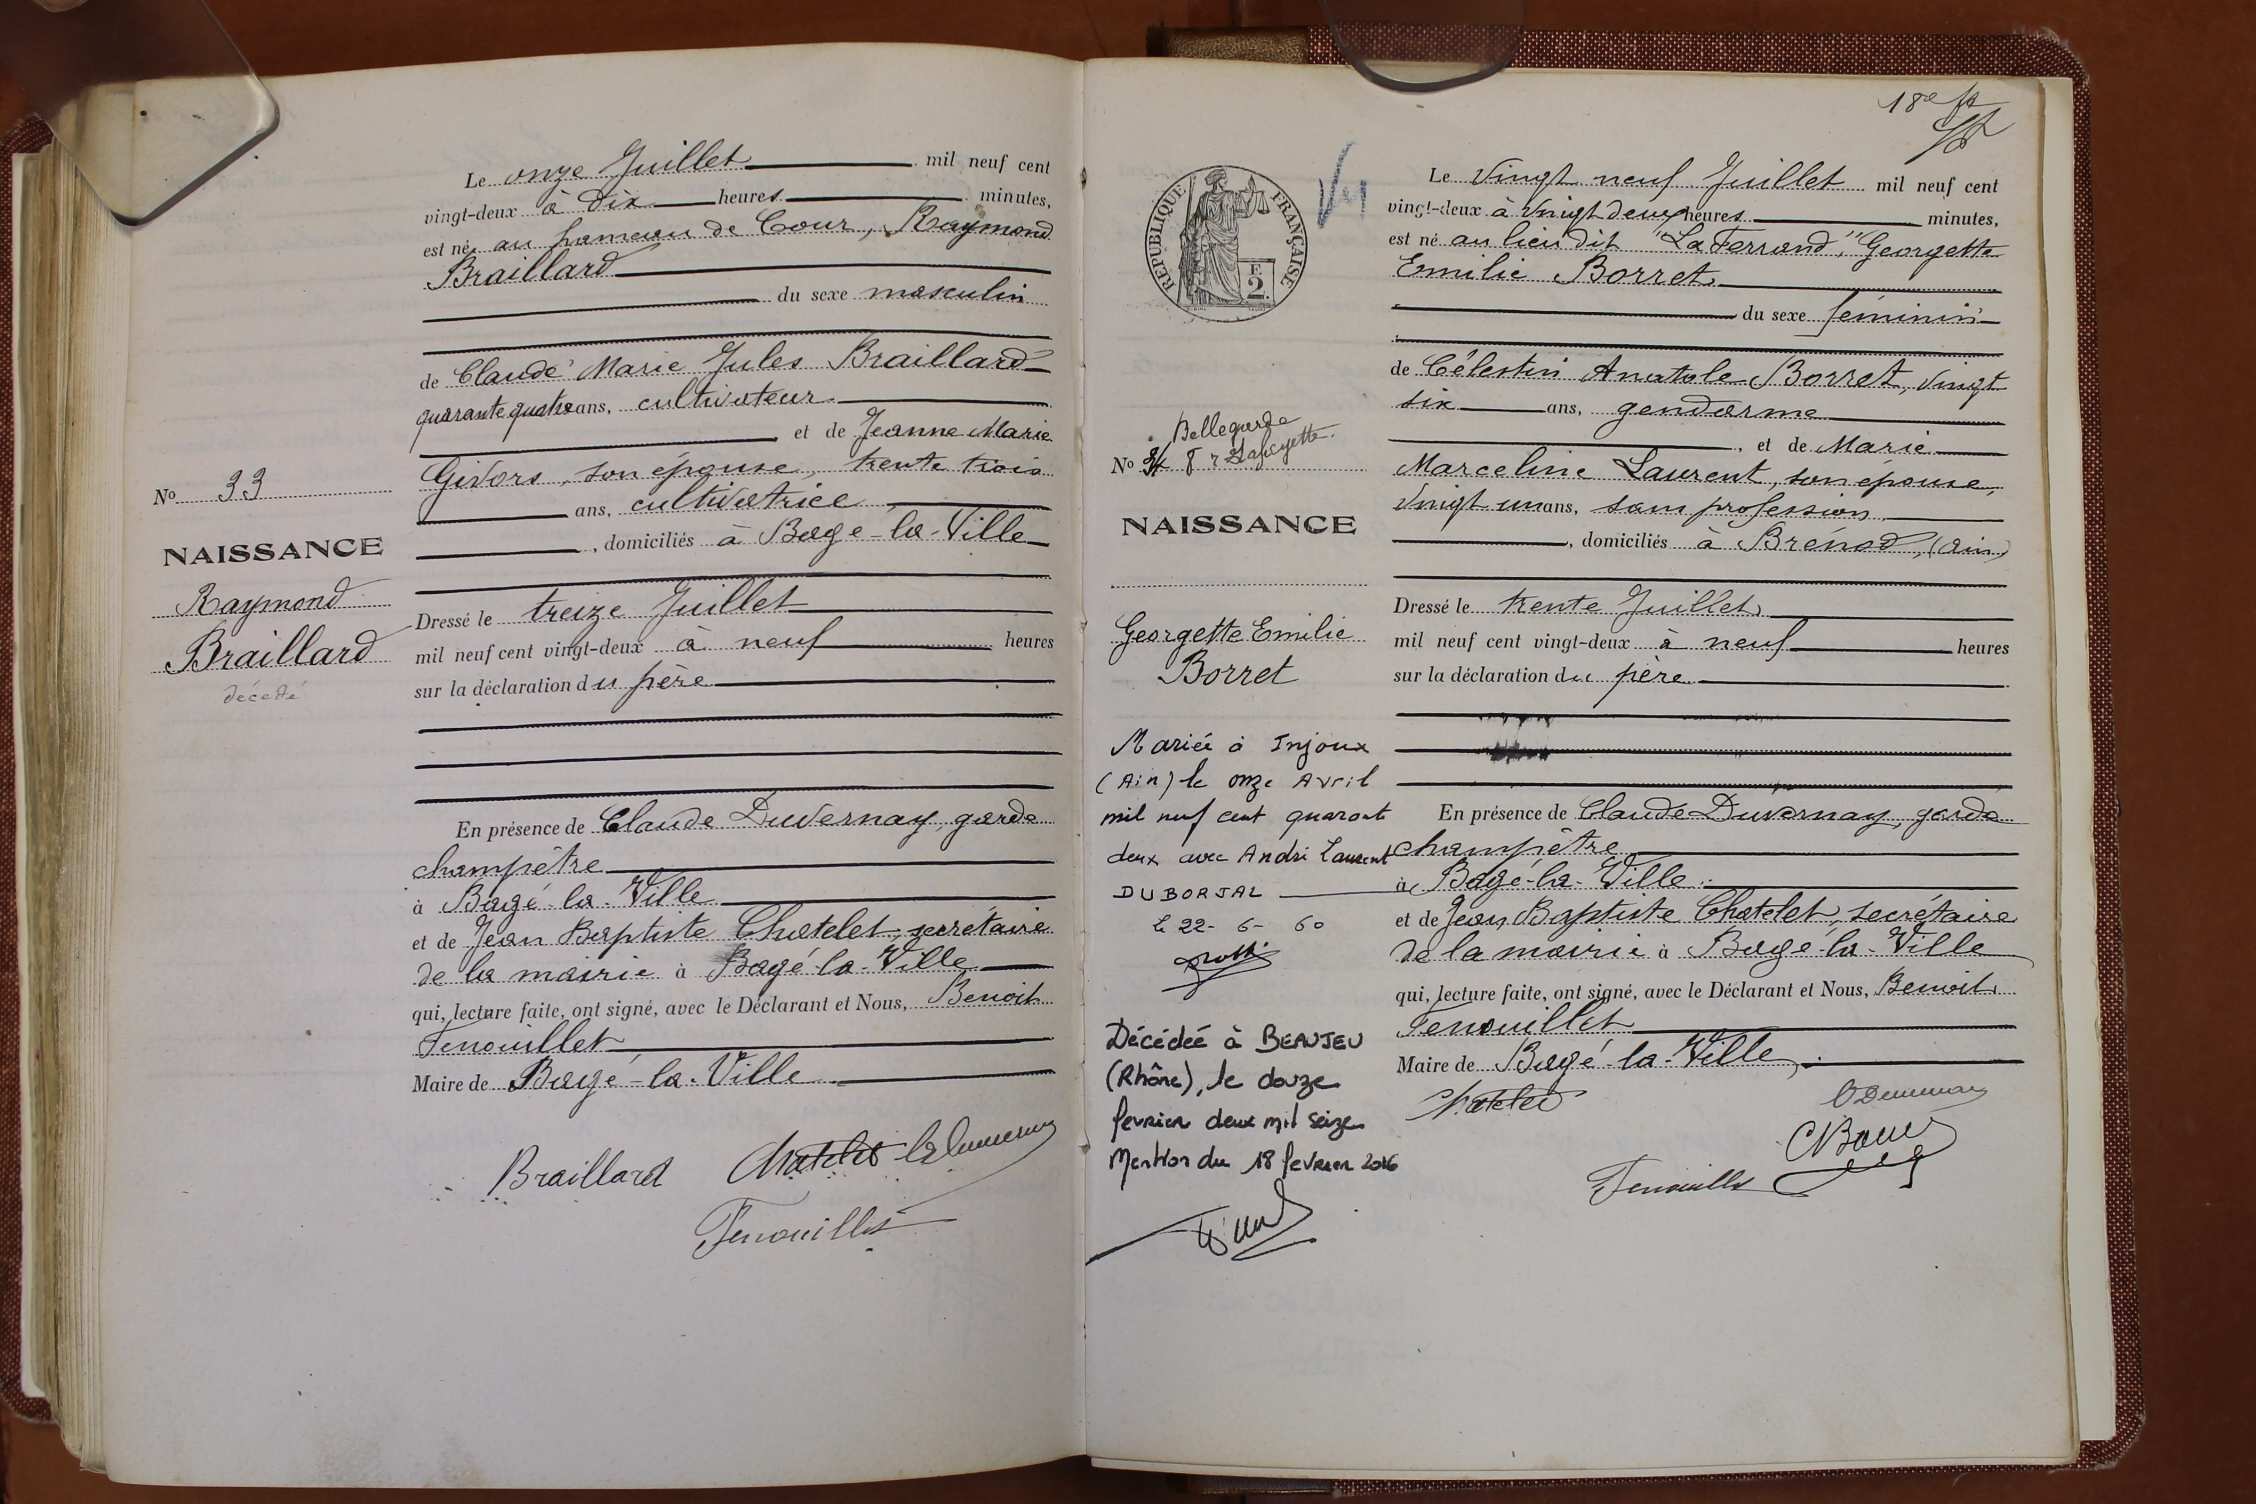 Le onze Juillet mil neuf cent
vingt-deux à dix heures minutes,
est né au hameau de Cour, Raymond
Braillard
du sexe masculin
de Claude Marie Jules Braillard
quarante quatre ans, cultivateur
et de Jeanne Marie
Givors, son épouse, trente trois
ans, cultivatrice
, domiciliés à Bagé-la-Ville
No 33
NAISSANCE
Raymond
Braillard
décédé
Dressé le treize Juillet
mil neuf cent vingt-deux à neuf heures
sur la déclaration du père
En présence de Claude Duvernay, garde
champêtre
à Bagé-la-Ville
et de Jean Baptiste Chatelet, secrétaire
de la mairie à Bagé-la-Ville
qui, lecture faite, ont signé, avec le Déclarant et Nous, Benoit
Fenouillet
Maire de Bagé-la-Ville
Braillard Chatelet
Fenouillet
18e
RÉPUBLIQUE FRANÇAISE
F.
2.
Bellegarde
8 r Lafayette.
No
NAISSANCE
Georgette Emilie
Borret
Mariée à Injoux
(Ain) le onze Avril
mil neuf cent quarante
deux avec André Laurent
DUBORJAL
le 22-6-60
Décédée à BEAUJEU
(Rhône), le douze
fevrier deux mil seize
Mention du 18 fevrier 2016
Le vingt neuf Juillet mil neuf cent
vingt-deux à vingt deux heures minutes,
est né au lieu dit "La Ferrand", Georgette
Emilie Borret
du sexe féminin
de Célestin Anatole Borret, vingt
six ans, gendarme
, et de Marie
Marceline Laurent, son épouse,
vingt un ans, sans profession
, domiciliés à Brénod, (Ain)
Dressé le trente Juillet
mil neuf cent vingt-deux à neuf heures
sur la déclaration du père
En présence de Claude Duvernay, garde
champêtre
à Bagé-la-Ville
et de Jean Baptiste Chatelet, secrétaire
de la mairie à Bagé-la-Ville
qui, lecture faite, ont signé, avec le Déclarant et Nous, Benoit
Fenouillet
Maire de Bagé-la-Ville
Chatelet
Fenouillet